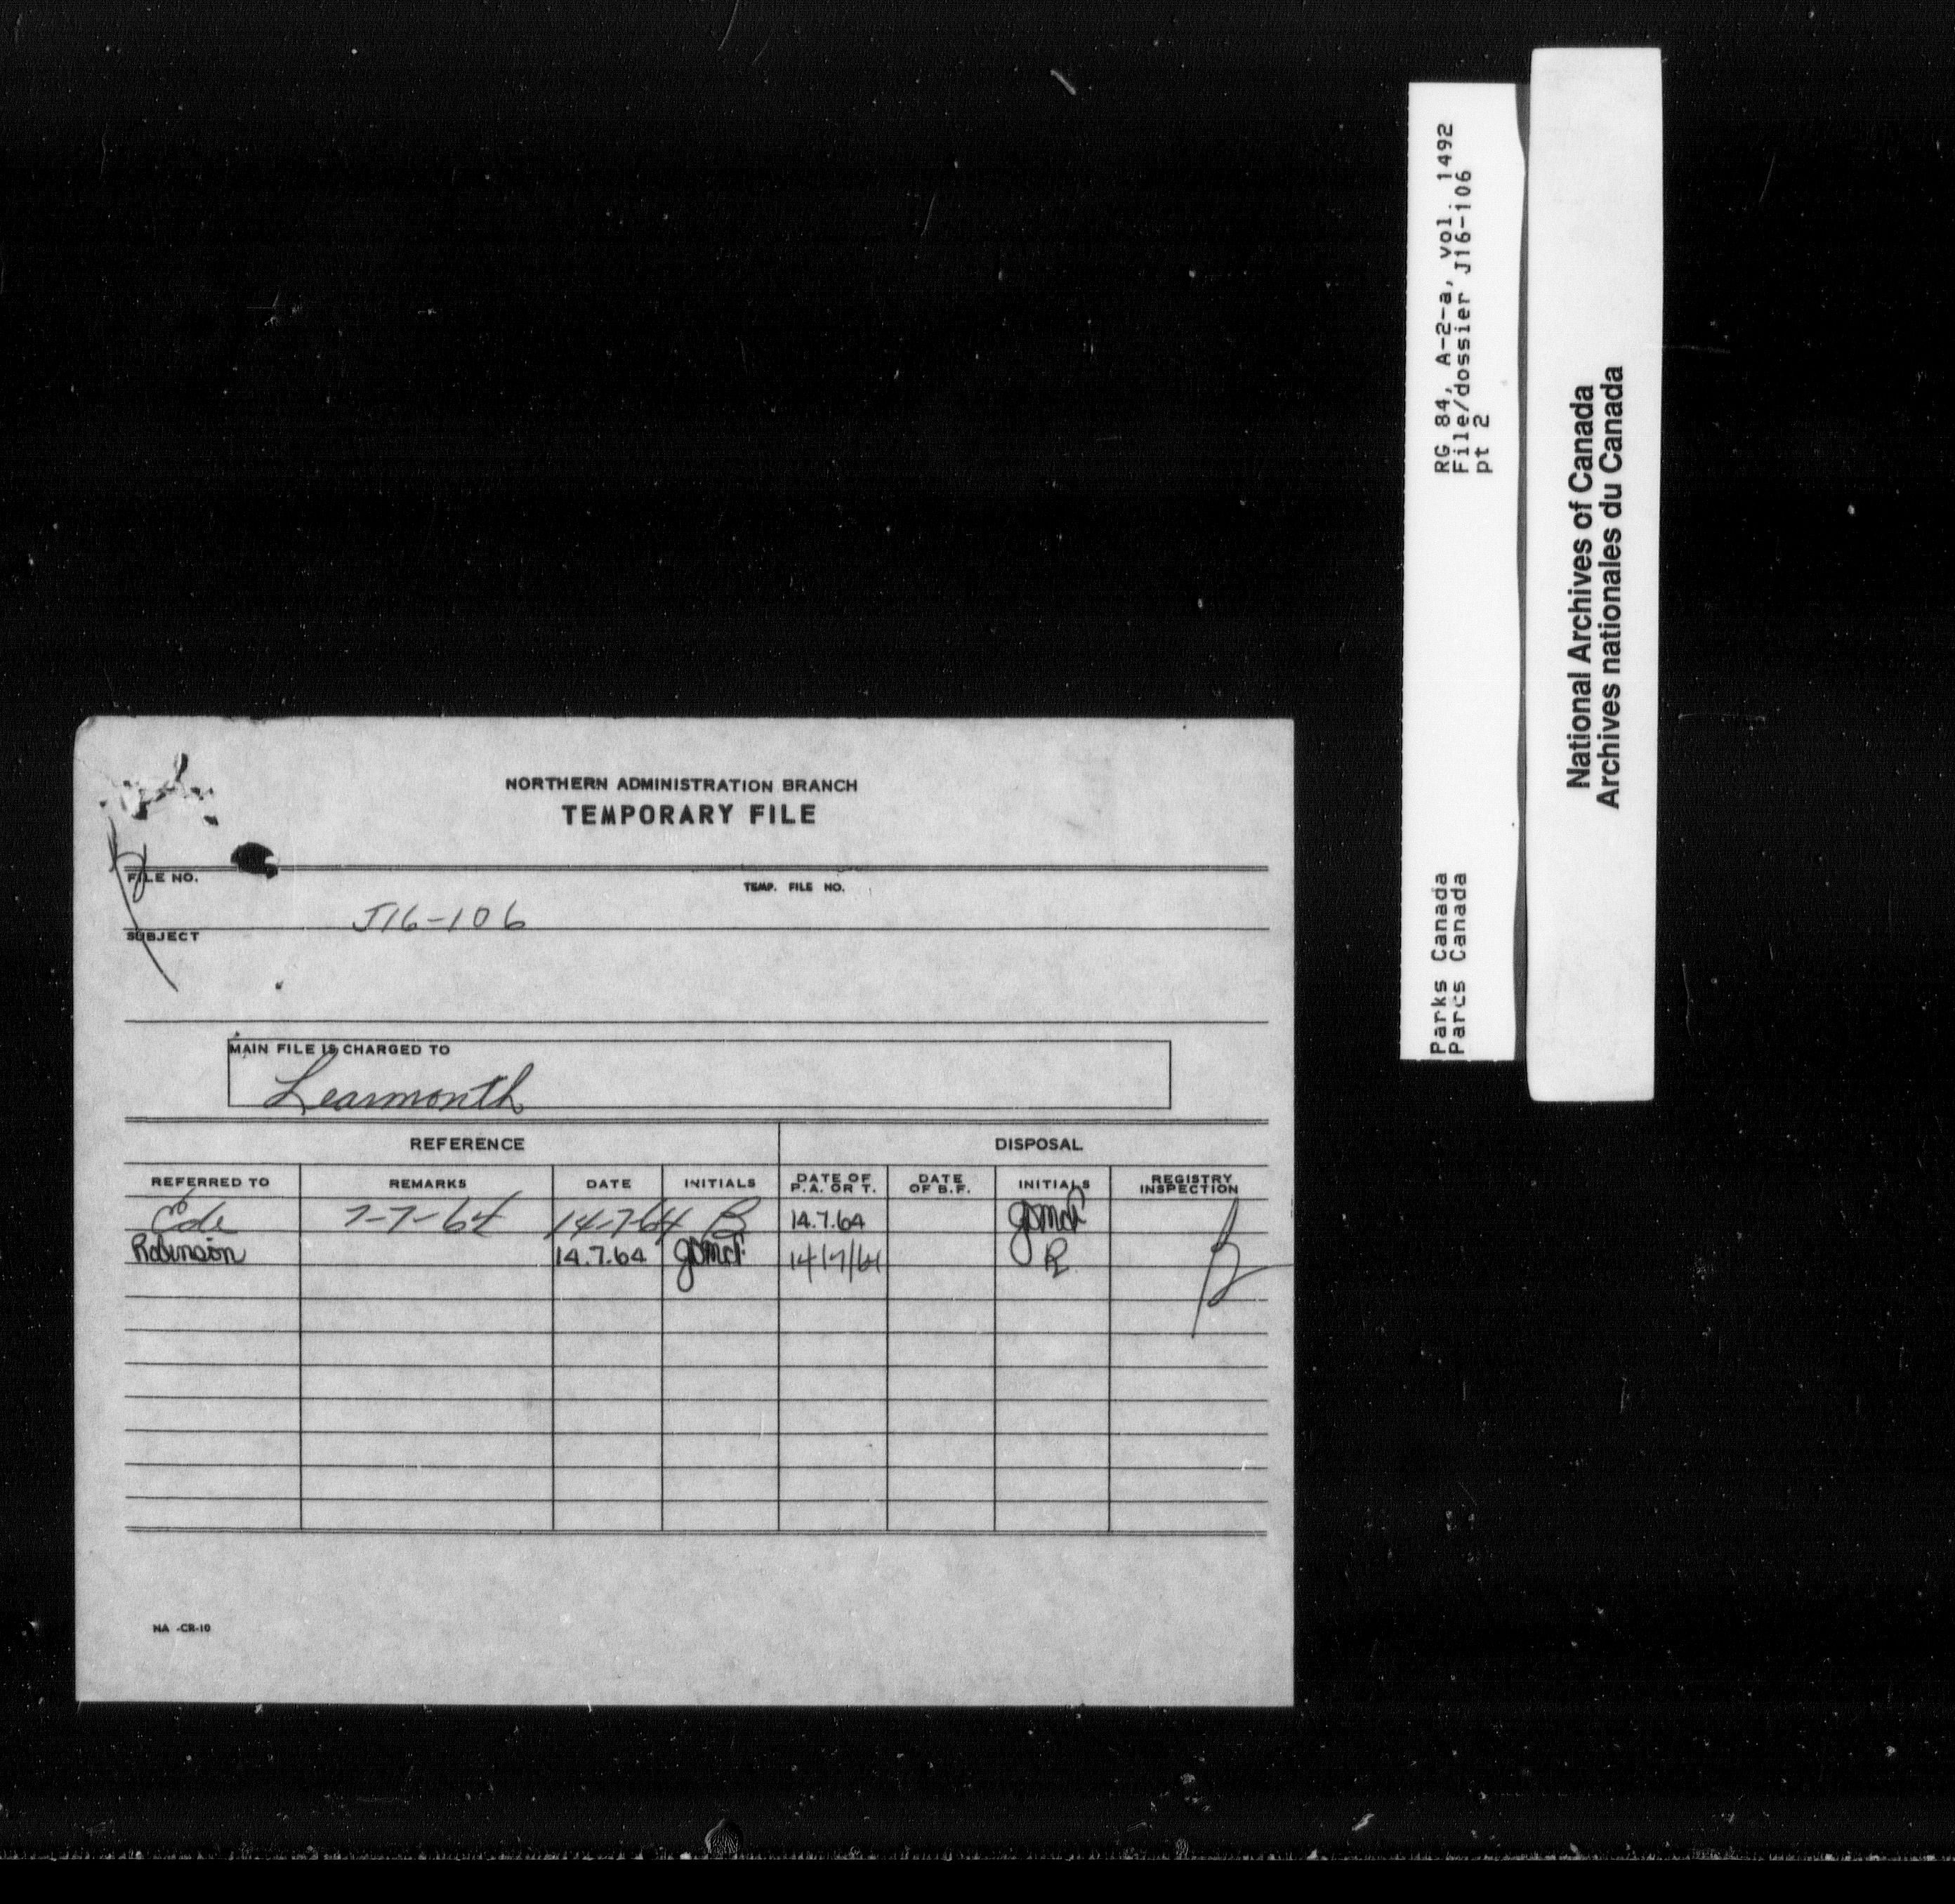 NORTHERN ADMINISTRATION BRANCH
TEMPORARY FILE
FILE NO. J16-106 TEMP. FILE NO.
SUBJECT
MAIN FILE IS CHARGED TO
Learmonth
REFERENCE DISPOSAL
REFERRED TO REMARKS DATE INITIALS DATE OF P.A. OR T. DATE OF B.F. INITIALS REGISTRY INSPECTION
Ede 7-7-64 14-7-64 B 14.7.64
Robinson 14.7.64 14/7/64 R
NA -CR-10
RG 84, A-2-a, vol. 1492
File/dossier J16-106
pt 2
Parks Canada
Parcs Canada
National Archives of Canada
Archives nationales du Canada